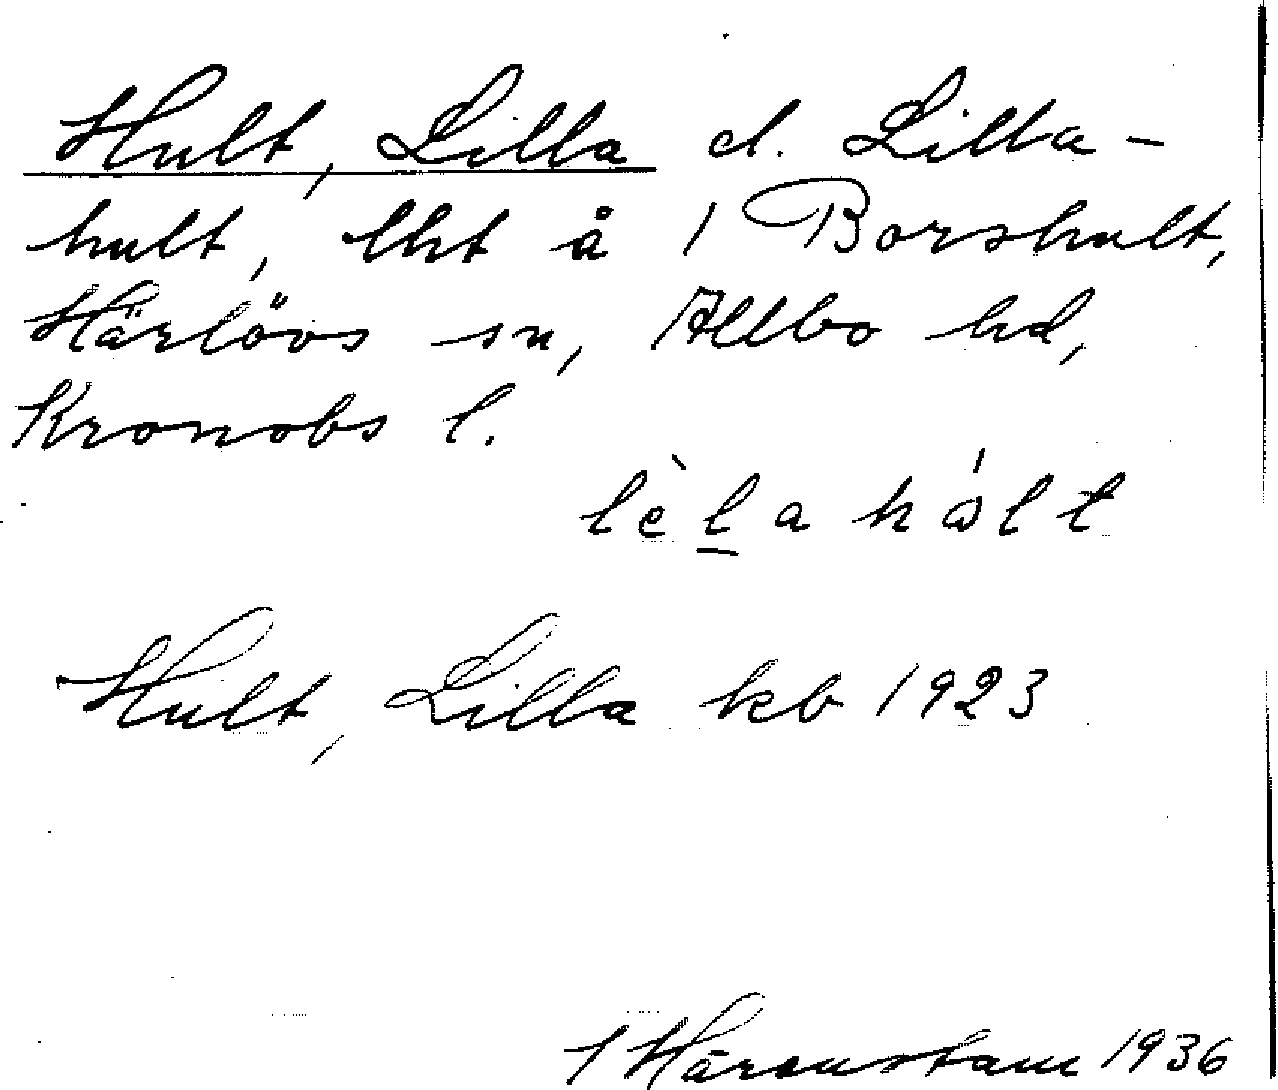 Hult, Lilla el. Lilla-
hult, lht å 1 Borshult,
Härlövs sn, Allbo hd,
Kronobs l.
lèl̲a hǻlt
Hult, Lilla kb 1923
1936